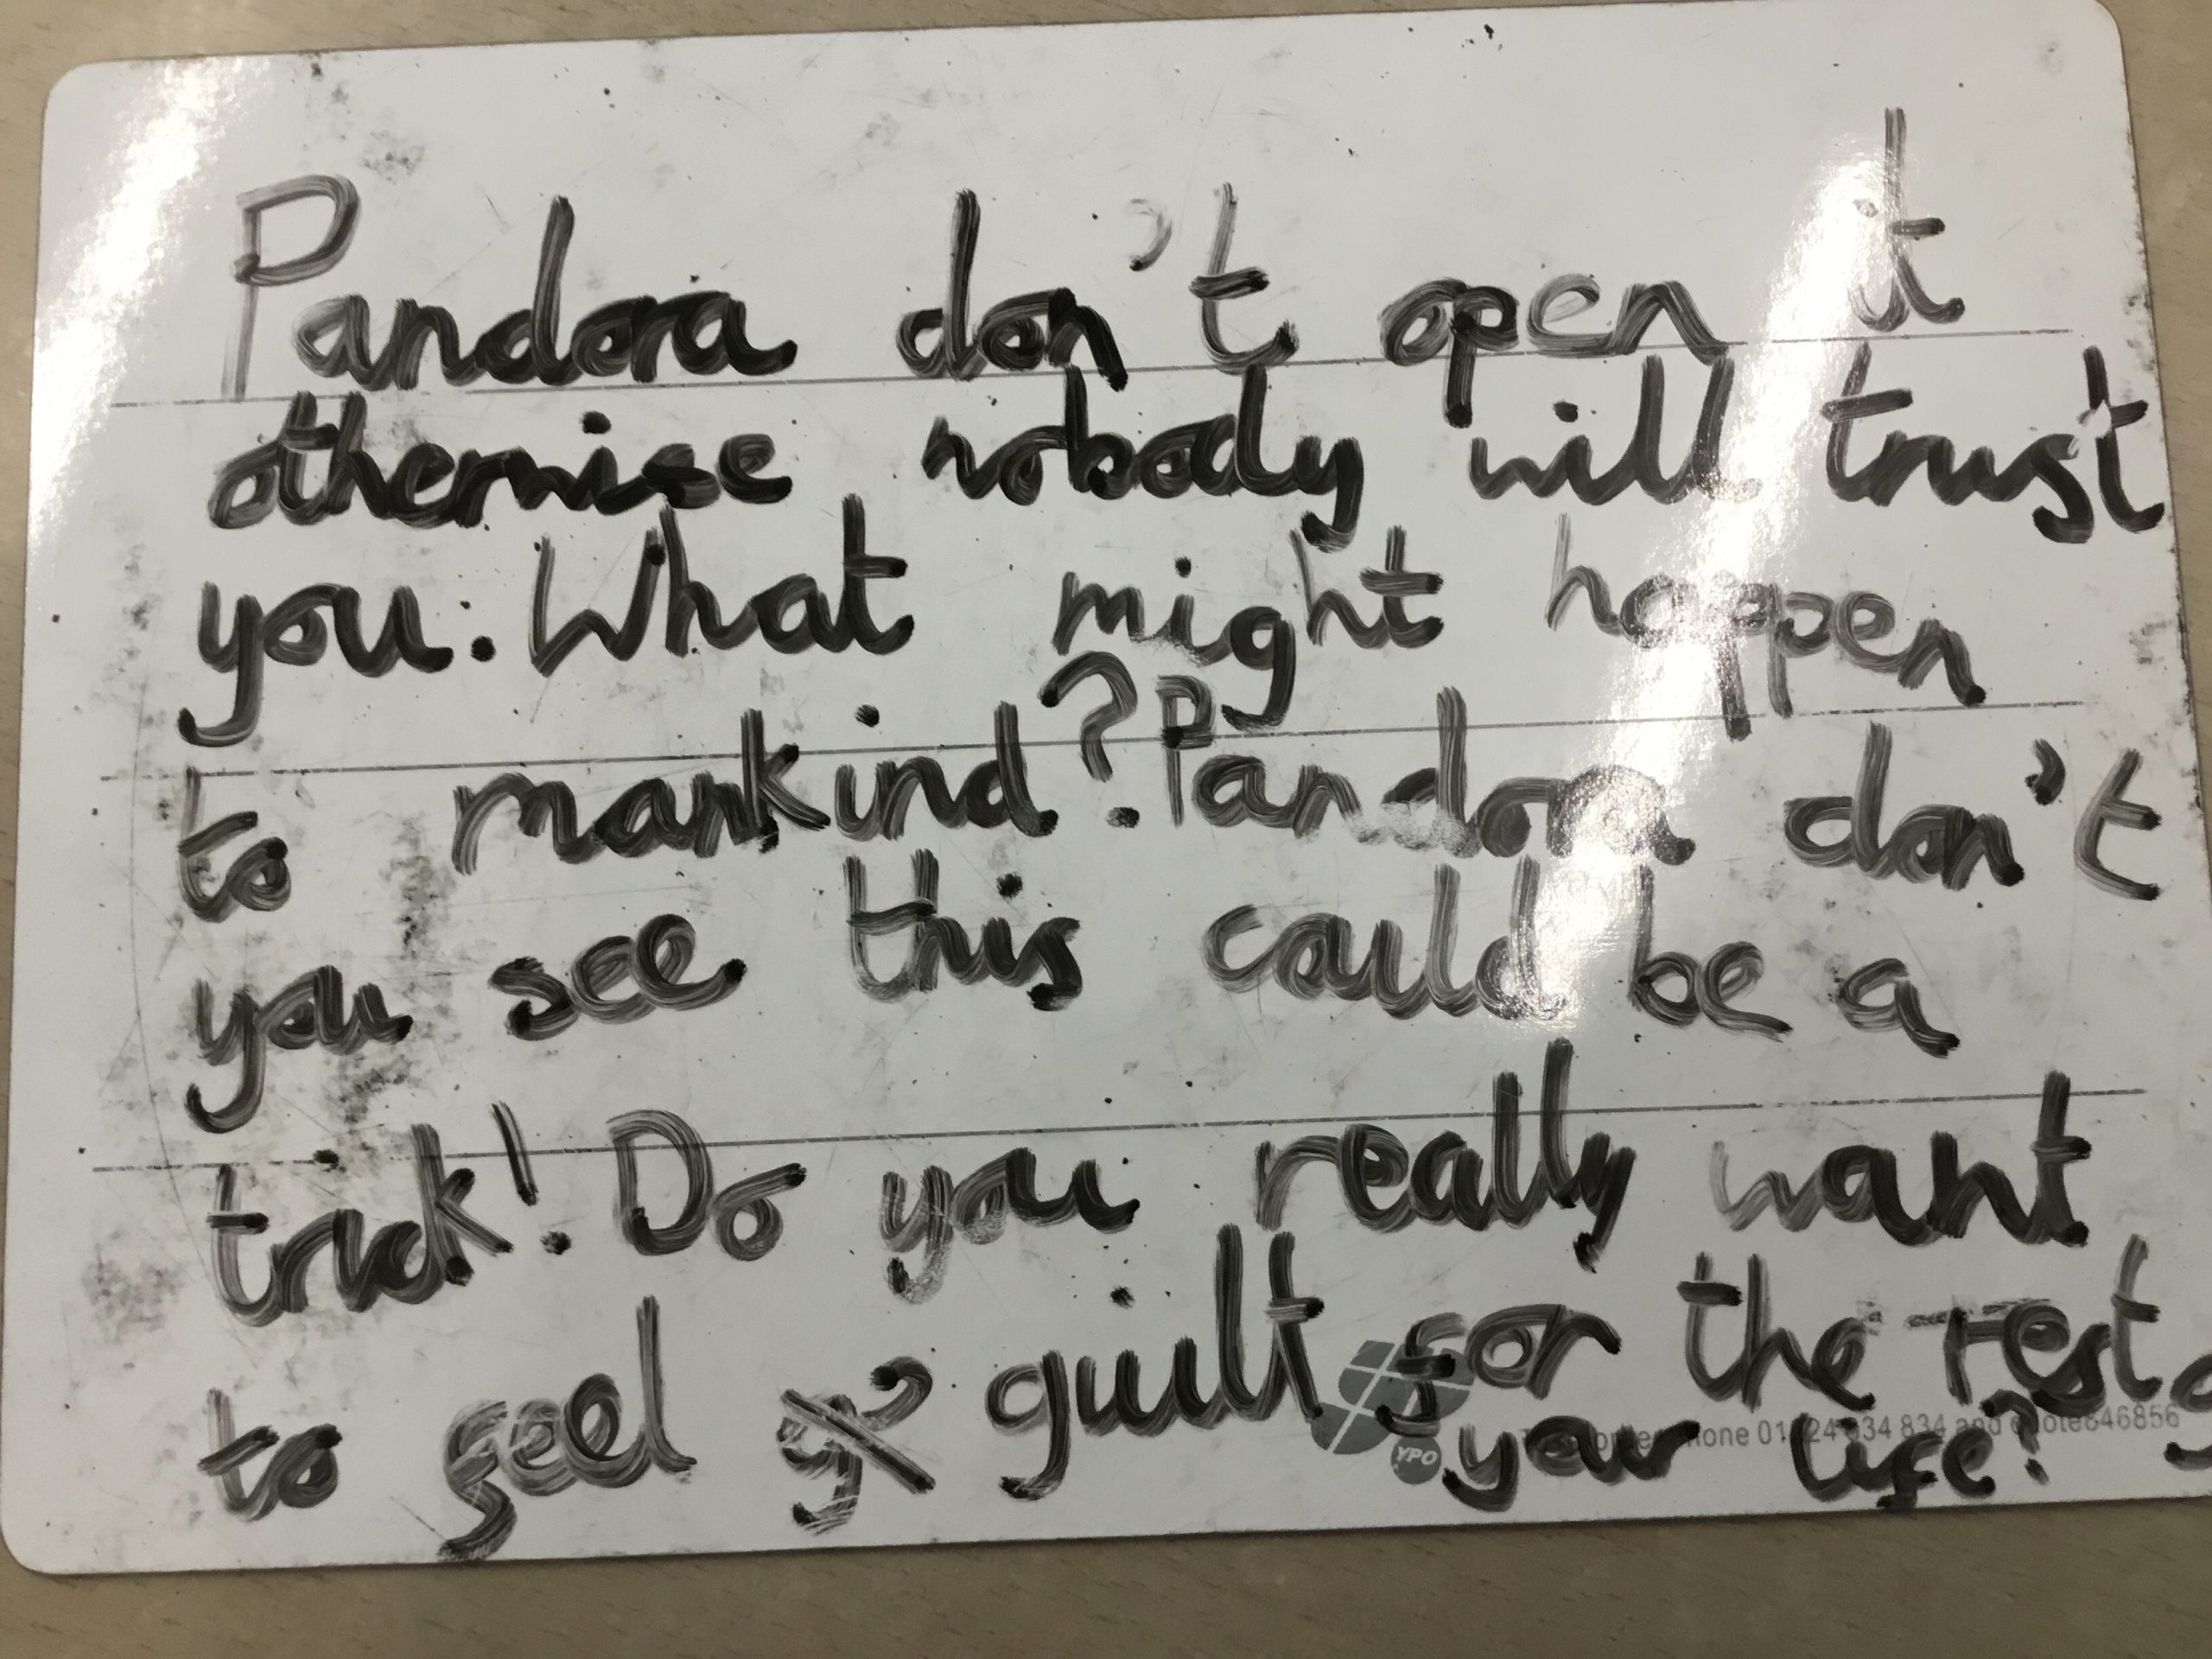 Pandora don't open it
otherwise nobody will trust
you. What might happen
to mankind? Pandora don't
you see this could be a
trick! Do you really want
to feel guilt for the rest
your life?
YPO